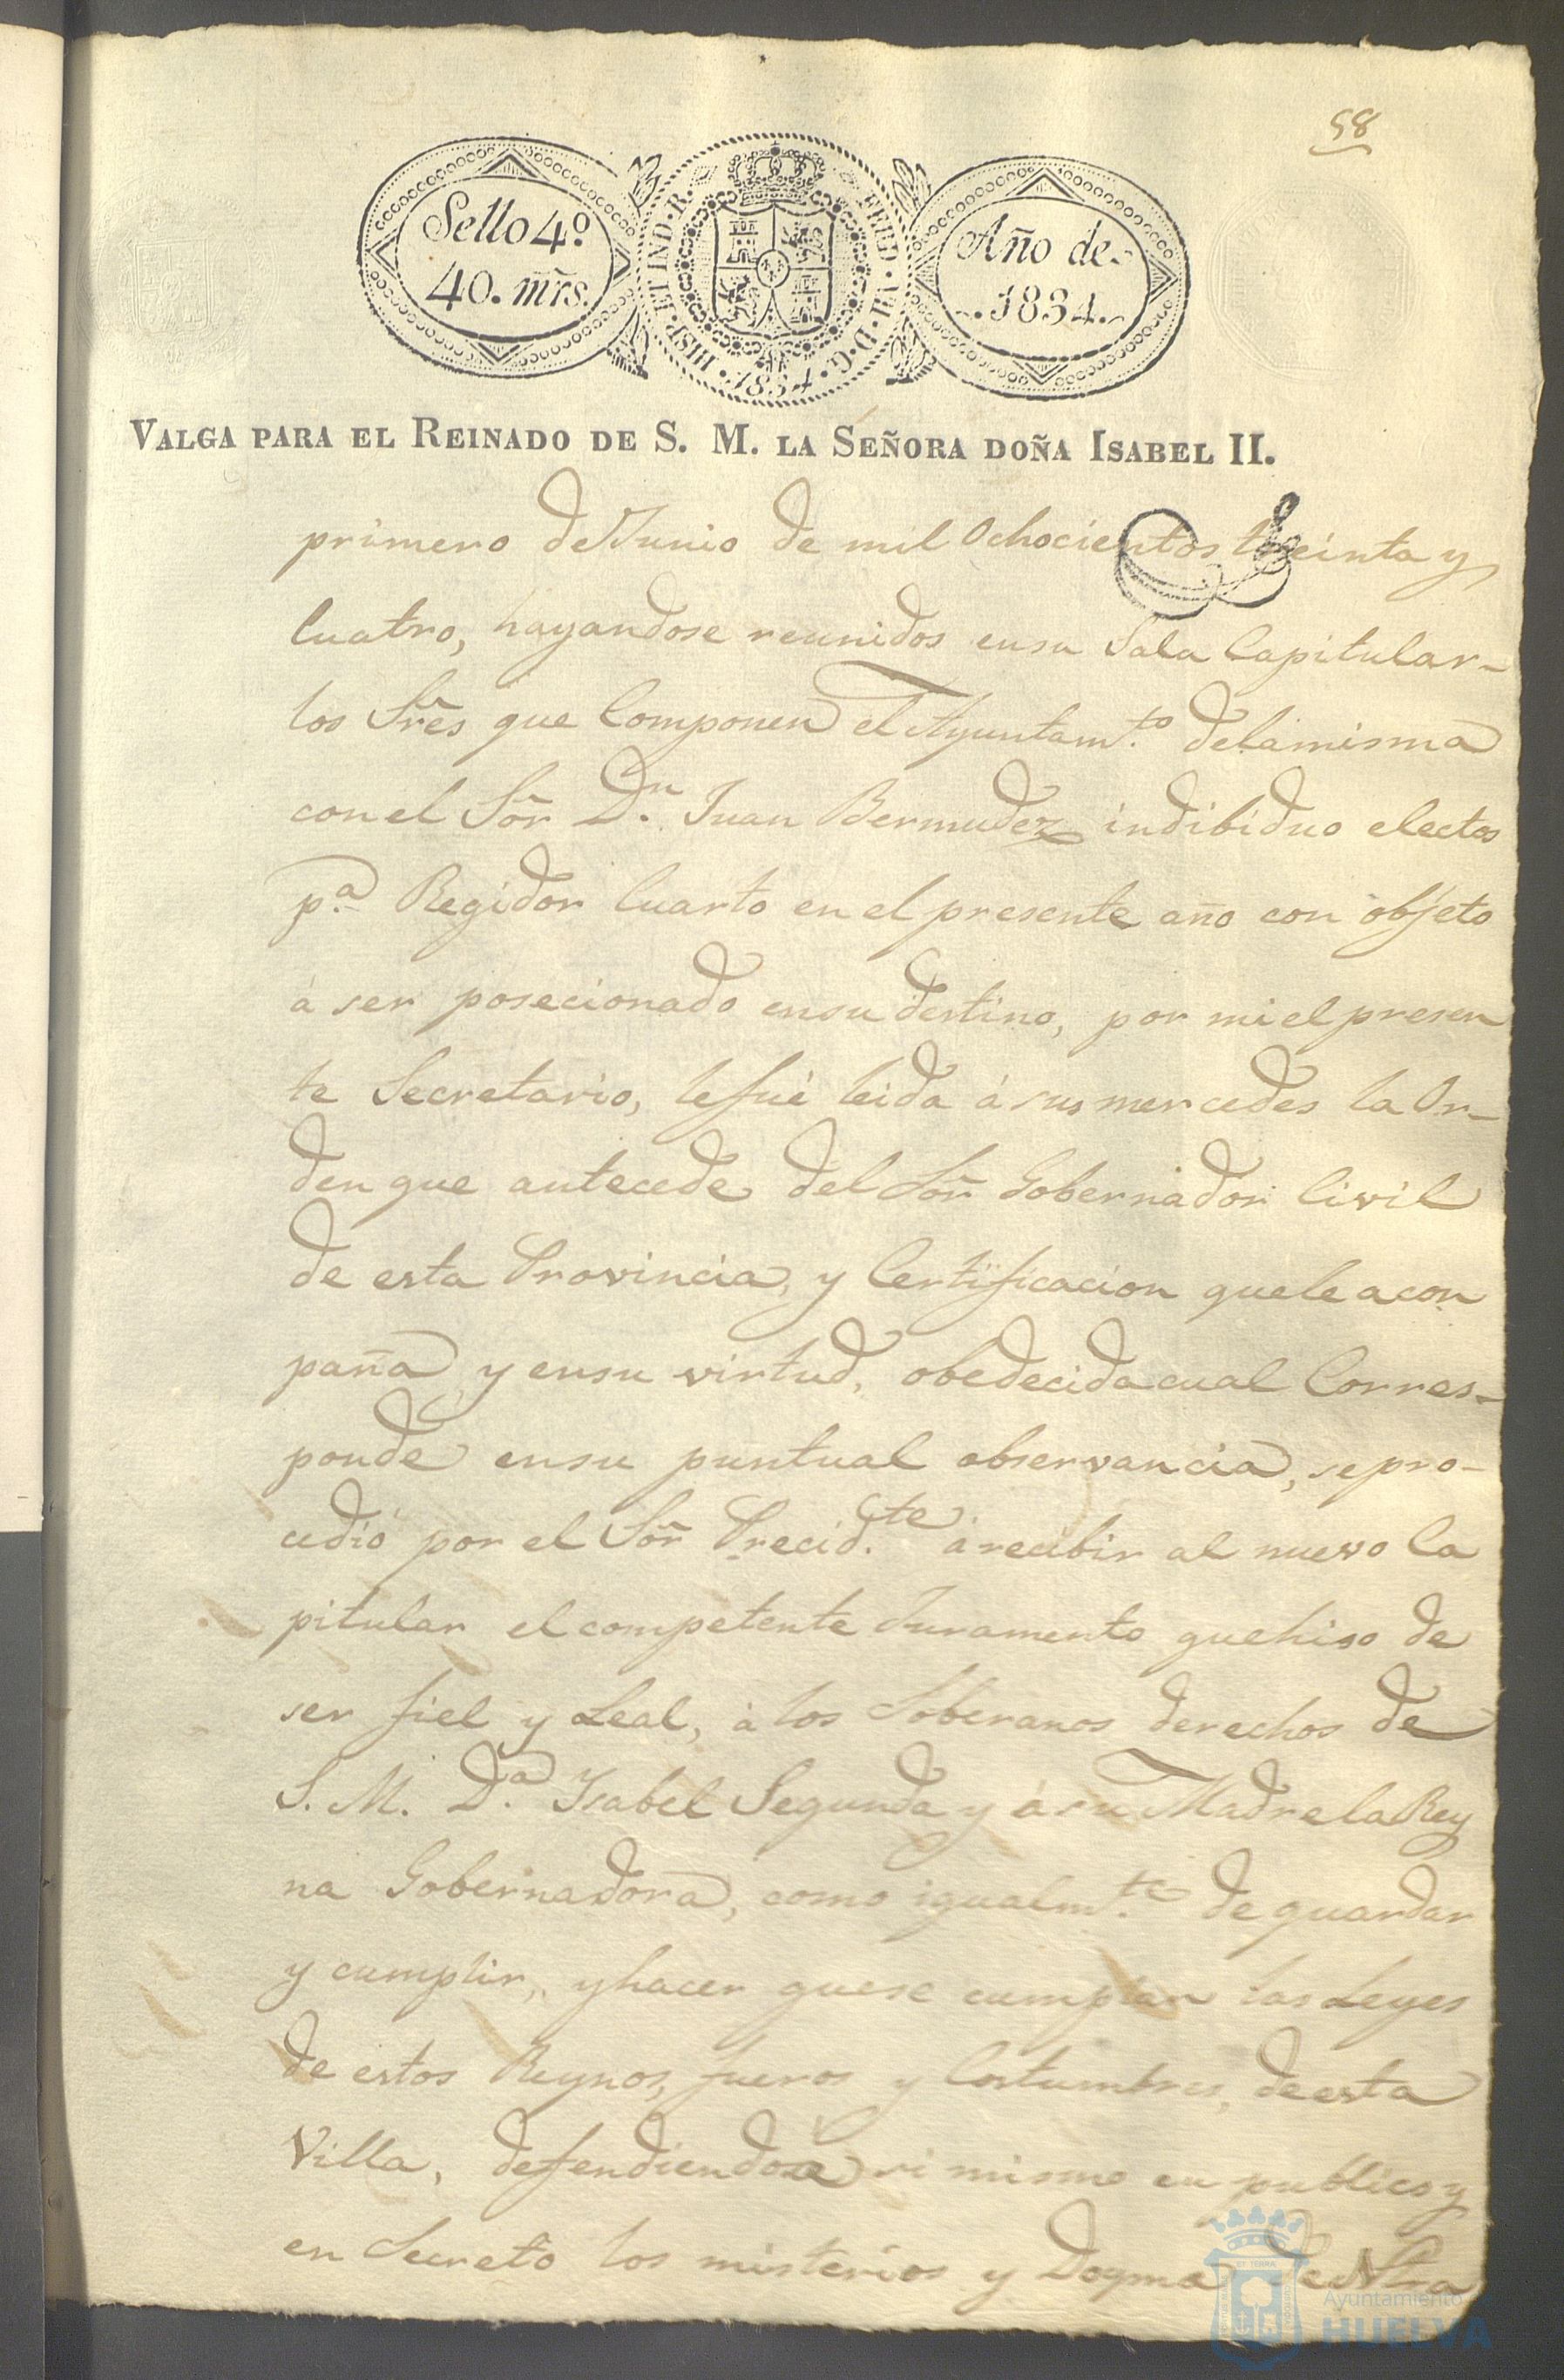 58
Sello 4º
40. mrs.
HISP. ET IND. R.
FERD. VII. D. G.
1834
Año de
1834.
VALGA PARA EL REINADO DE S. M. LA SEÑORA DOÑA ISABEL II.
primero de Junio de mil Ochocientos treinta y
Cuatro, hayandose reunidos en su Sala Capitular
los Sres que Componen el Ayuntamto. de la misma
con el Sor Dn. Juan Bermudez indibiduo electo
pa. Regidor Cuarto en el presente año con objeto
á ser posecionado en su destino, por mi el presen
te Secretario, le fué leida á sus mercedes la Or-
den que antecede del Sor Gobernador Civil
de esta Provincia, y Certificacion que le acon
paña y en su virtud, obedecida cual Corres-
ponde en su puntual observancia, se pro-
cedió por el Sor Precidte. á recibir al nuevo Ca
pitular el competente Juramento que hiso de
ser fiel y Leal, á los Soberanos derechos de
S. M. Da. Isabel Segunda y á su Madre la Rey
na Gobernadora, como igualmte. de guardar
y cumplir, y hacer que se cumplan las Leyes
de estos Reynos, fueros y Costumbres, de esta
Villa, defendiendo mismo en publico y
en Secreto los misterios y Dogma de Ntra
Ayuntamiento
HUELVA